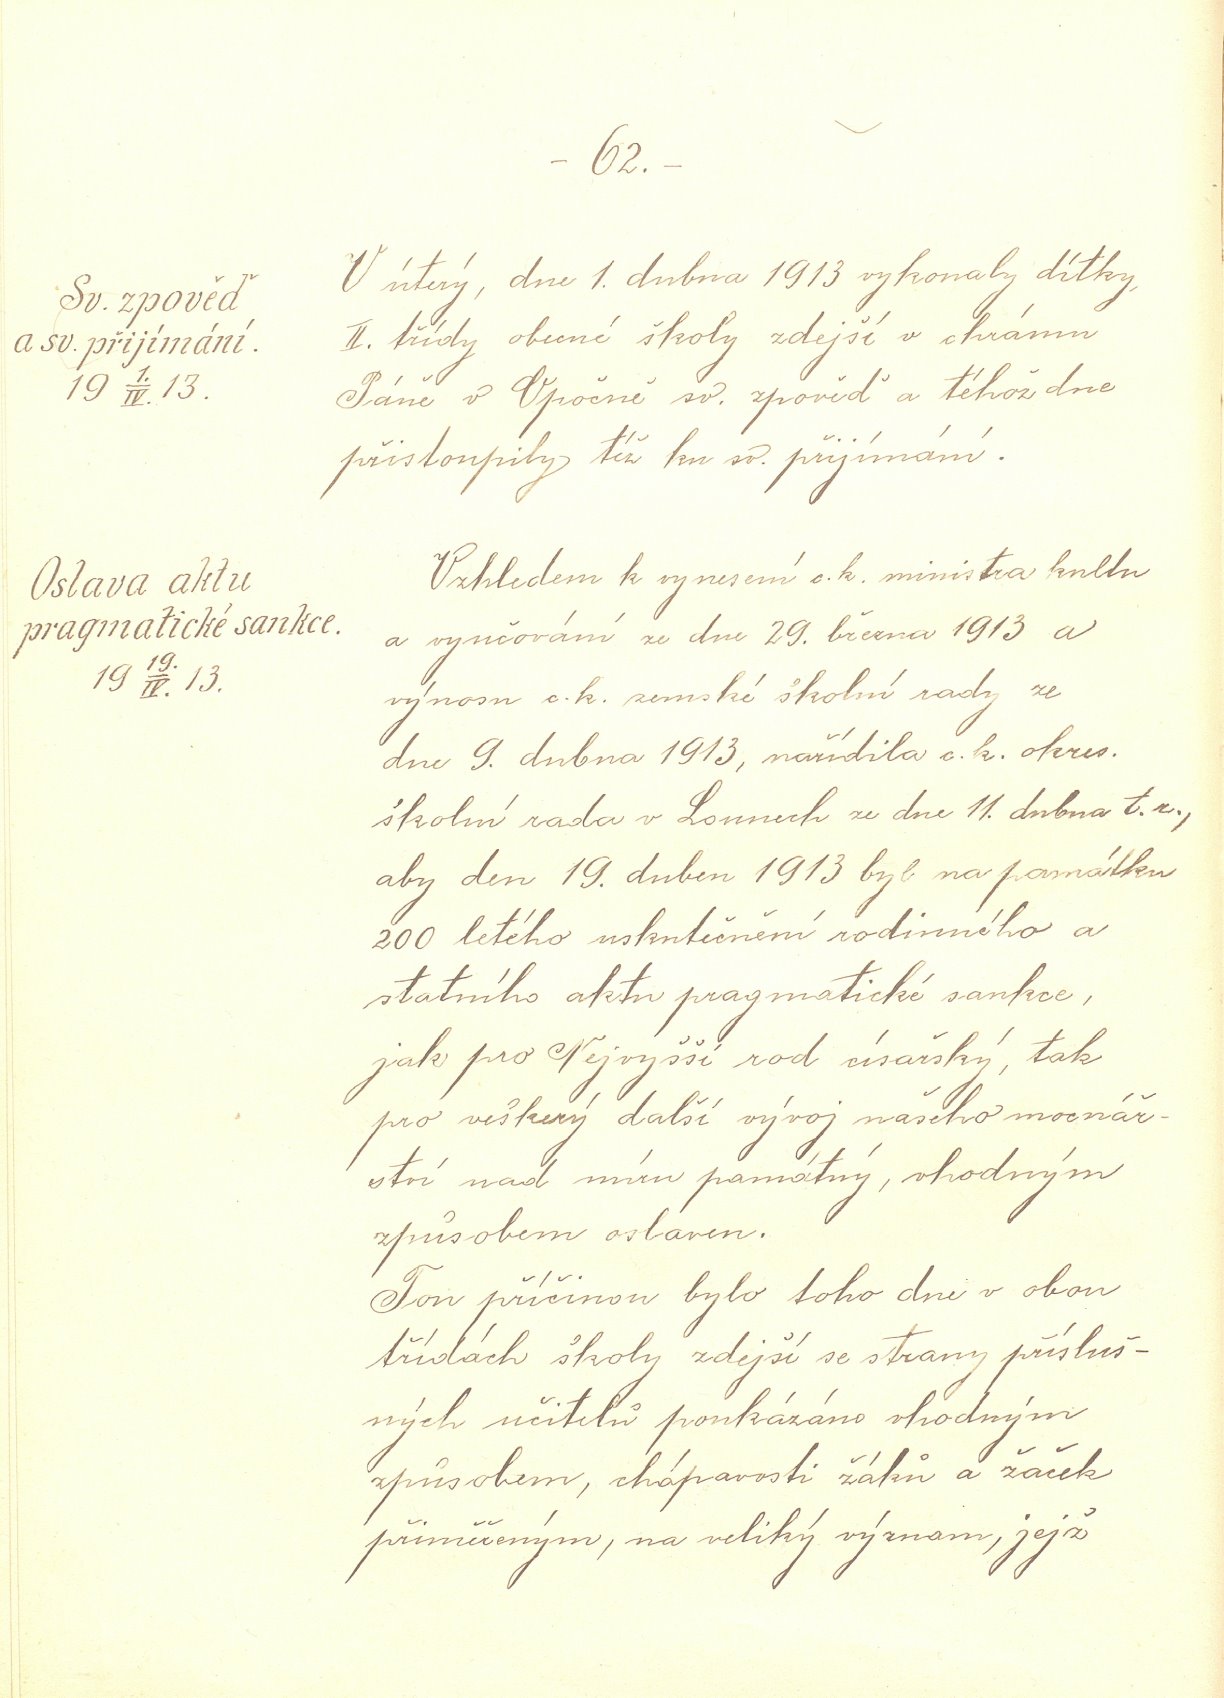 - 62. -
Sv. zpověď
a sv. přijímání.
19 1./IV. 13.
V úterý, dne 1. dubna 1913 vykonaly dítky
II. třídy obecné školy zdejší v chrámu
Páně v Opočně sv. zpověď a téhož dne
přistoupily též ku sv. přijímání.
Oslava aktu
pragmatické sankce.
19 19./IV. 13.
Vzhledem k vynesení c. k. ministra kultu
a vyučování ze dne 29. března 1913 a
výnosu c. k. zemské školní rady ze
dne 9. dubna 1913, nařídila c. k. okres.
školní rada v Lounech ze dne 11. dubna t. r.,
aby den 19. duben 1913 byl na památku
200 letého uskutečnění rodinného a
statního aktu pragmatické sankce,
jak pro Nejvyšší rod císařský, tak
pro veškerý další vývoj našeho mocnář-
ství nad míru památný, vhodným
způsobem oslaven.
Tou příčinou bylo toho dne v obou
třídách školy zdejší se strany přísluš-
ných učitelů poukázáno vhodným
způsobem, chápavosti žáků a žaček
přiměřeným, na veliký význam, jejž